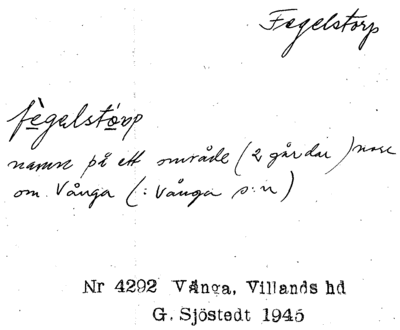 Fegelstorp
fègelstórp
namn på ett område (2 gårdar)
om Vånga (: Vånga s:n)
Nr 4292 Vånga, Villands hd
G. Sjöstedt 1945